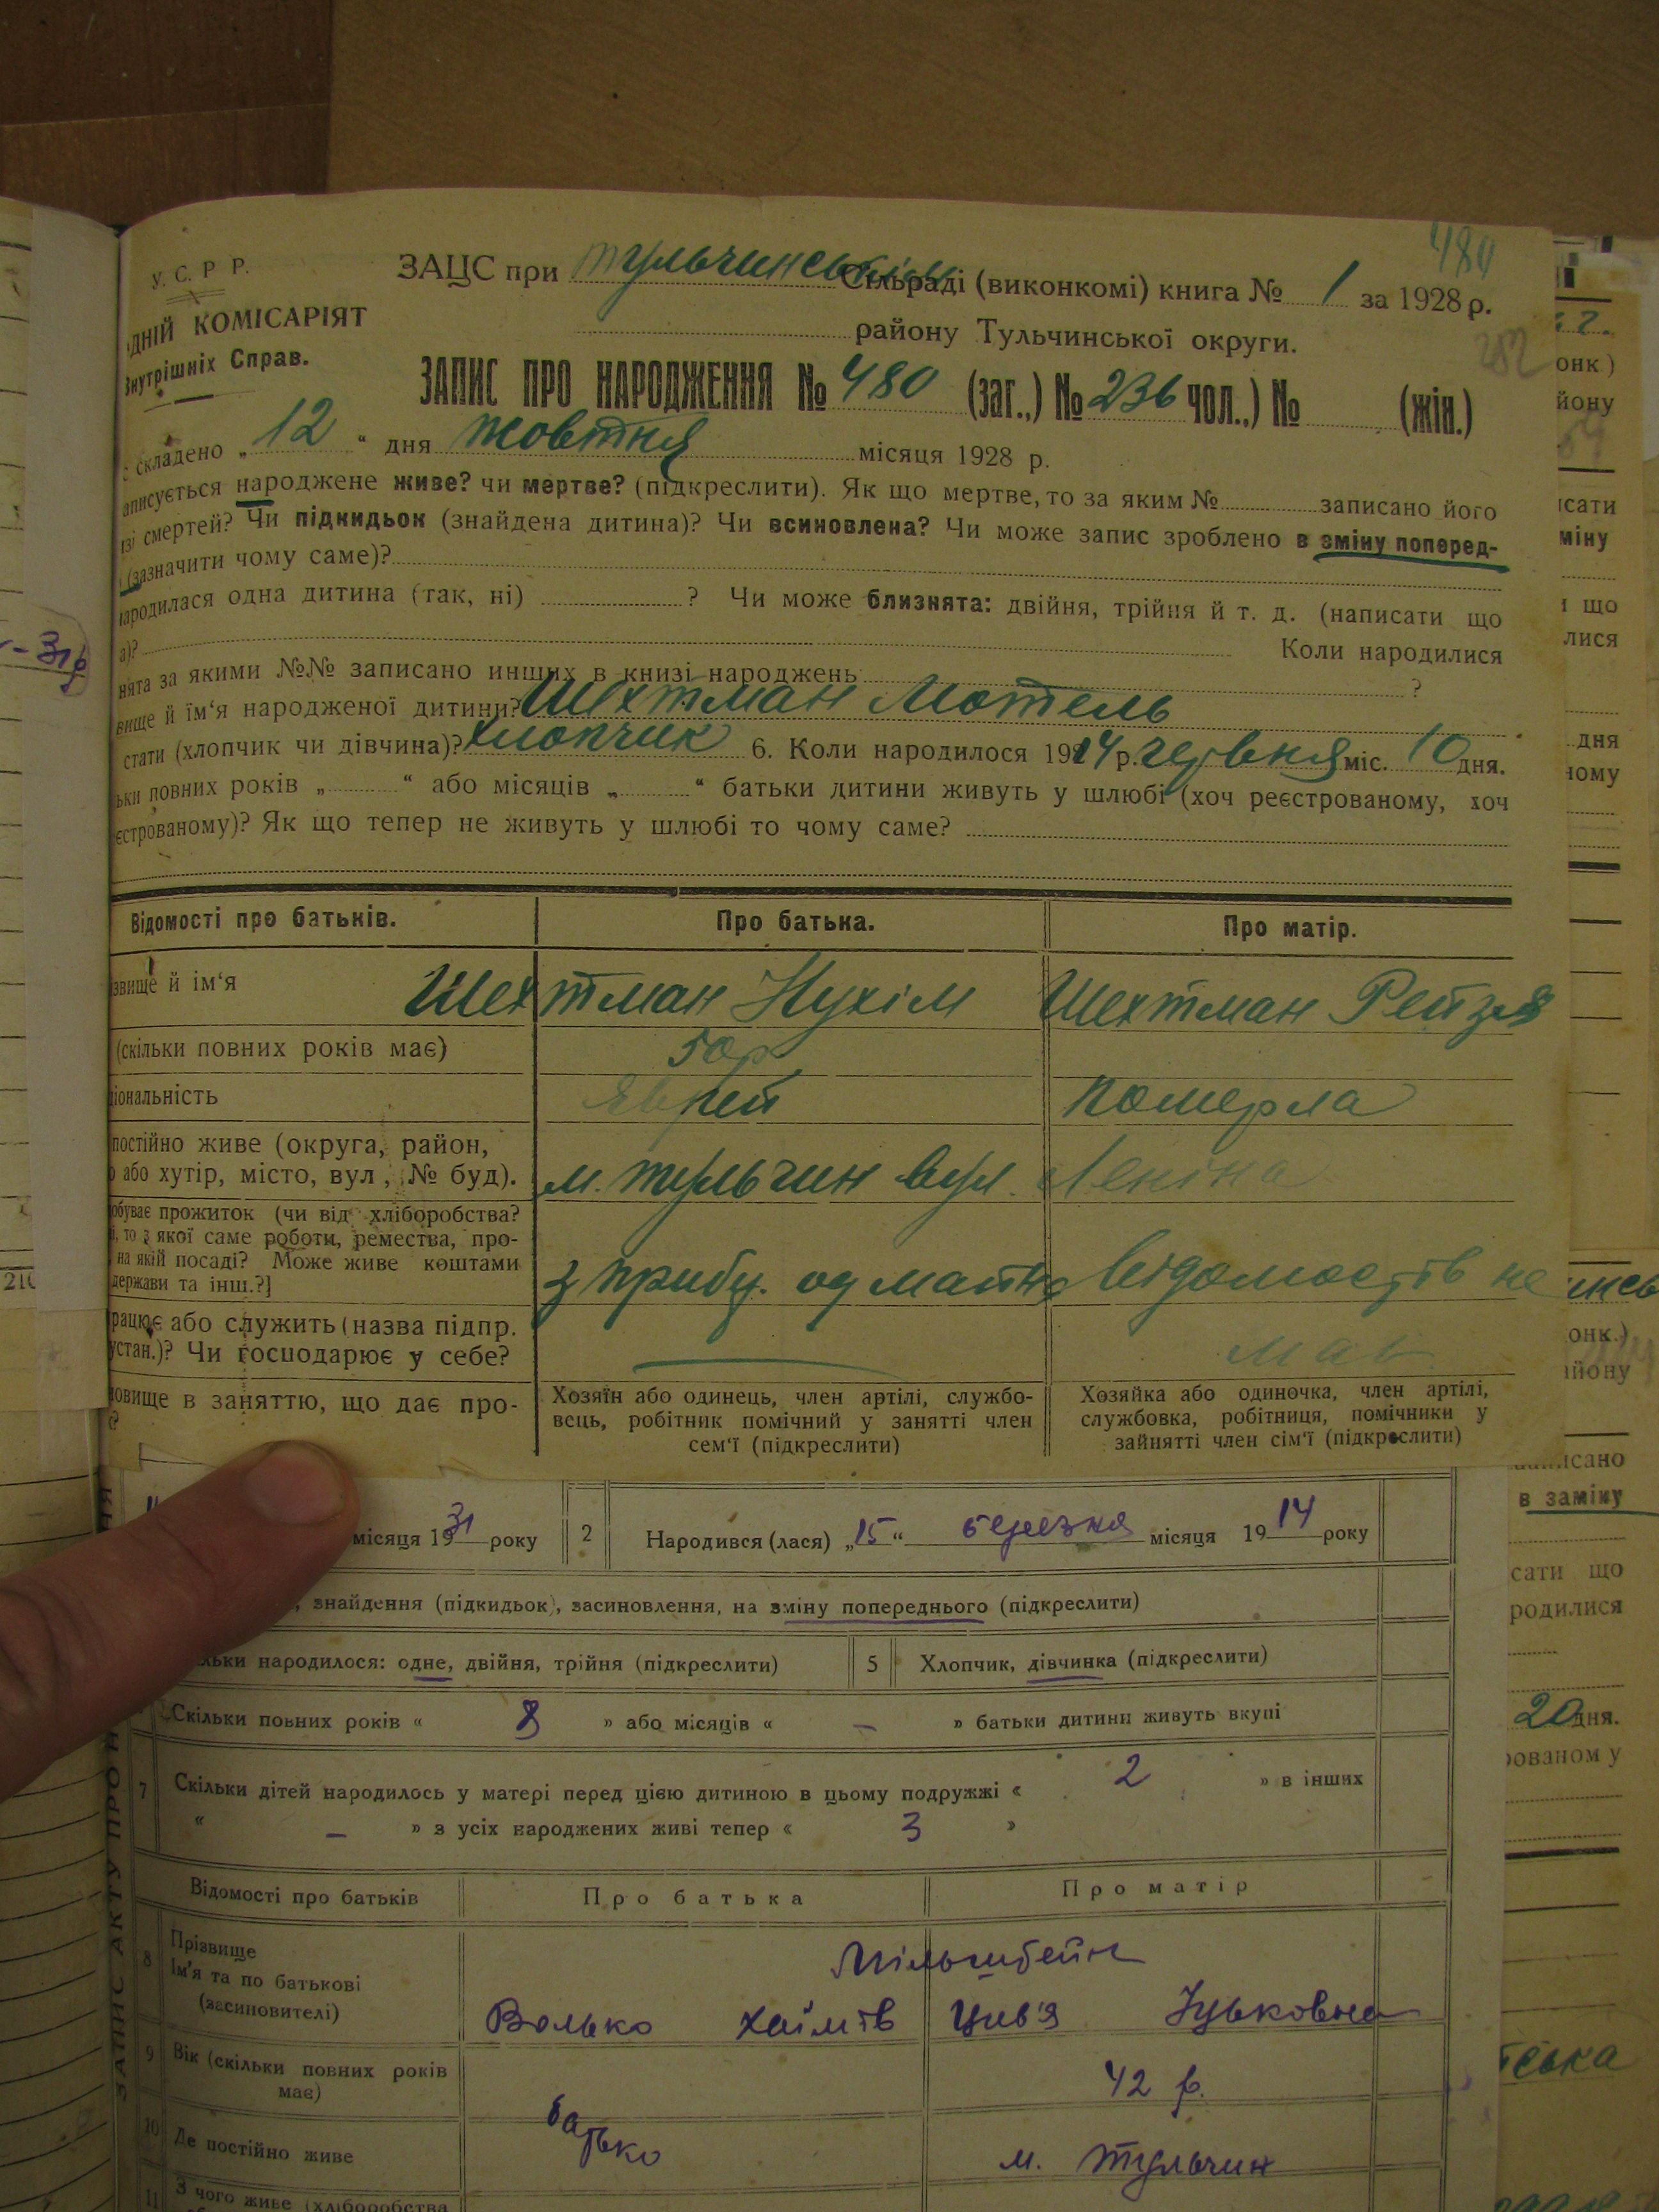 480
У. С. Р Р.
ЗАЦС при Тульчинськім Сільраді (виконкомі) книга № 1 за 1928 р.
дній КОМІСАРІЯТ
Внутрішніх Справ.
району Тульчинської округи.
282
ЗАПИС ПРО НАРОДЖЕННЯ № 480 (заг.,) № 236 чол.,) № (жін.)
складено „ 12 “ дня жовтня місяця 1928 р.
аписується народжене живе? чи мертве? (підкреслити). Як що мертве, то за яким № записано його
зі смертей? Чи підкидьок (знайдена дитина)? Чи всиновлена? Чи може запис зроблено в зміну поперед-
(зазначити чому саме)?
ародилася одна дитина (так, ні) ? Чи може близнята: двійня, трійня й т. д. (написати що
а)? Коли народилися
нята за якими №№ записано инших в книзі народжень ?
вище й ім‘я народженої дитини? Шехтман Мотель
стати (хлопчик чи дівчина)? хлопчик 6. Коли народилося 1914 р. червня міс. 10 дня.
ьки повних років „ “ або місяців „ “ батьки дитини живуть у шлюбі (хоч реєстрованому, хоч
єстрованому)? Як що тепер не живуть у шлюбі то чому саме?
Відомості про батьків. Про батька. Про матір.
звище й ім‘я Шехтман Нухім Шехтман Рейзля
(скільки повних років має) 50 р
іональність Яврей померла
постійно живе (округа, район,
о або хутір, місто, вул, № буд). м. Тульчин вул. Леніна
обуває прожиток (чи від хліборобства?
, то з якої саме роботи, ремества, про-
на якій посаді? Може живе коштами
держави та інш.?] з прибу. од майна Відомостів не
рацює або служить (назва підпр.
устан.)? Чи господарює у себе? має
овище в заняттю, що дає про- Хозяїн або одинець, член артілі, службо-
вець, робітник помічний у занятті член
сем‘ї (підкреслити)
Хозяйка або одиночка, член артілі,
службовка, робітниця, помічники у
зайнятті член сім‘ї (підкреслити)
місяця 1931 року 2 Народився (лася) „15“ березня місяця 1914 року
, знайдення (підкидьок), засиновлення, на зміну попереднього (підкреслити)
льки народилося: одне, двійня, трійня (підкреслити) 5 Хлопчик, дівчинка (підкреслити)
Скільки повних років « 8 » або місяців « — » батьки дитини живуть вкупі
7 Скільки дітей народилось у матері перед цією дитиною в цьому подружжі « 2 » в інших
« — » з усіх народжених живі тепер « 3 »
Відомості про батьків Про батька Про матір
8 Прізвище
Ім’я та по батькові
(засиновителі)
Мільштейн
Волько Хаїмів Цив'я Іцьковна
9 Вік (скільки повних років
має) 42 р.
батько
10 Де постійно живе м. Тульчин
11 З чого живе (хліборобства
ЗАПИС АКТУ ПРО
онк.)
йону
исати
міну
і що
лися
дня
ному
онк.)
йону
записано
в заміну
сати що
родилися
20 дня.
рованом у